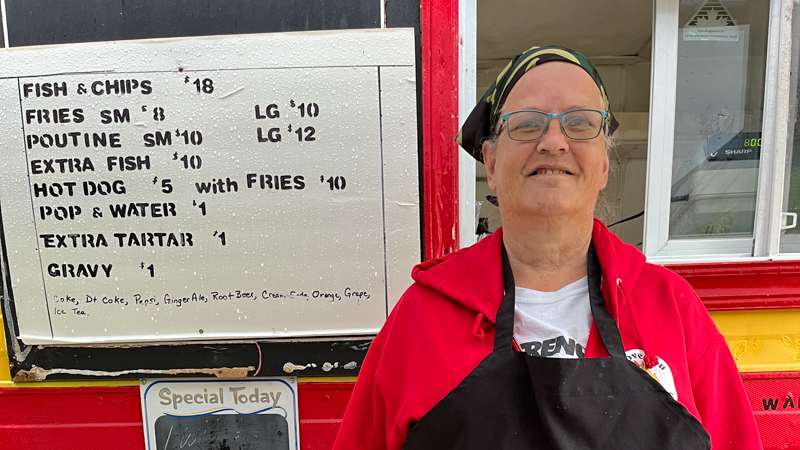 FISH & CHIPS $18
FRIES SM $8 LG $10
POUTINE SM $10 LG $12
EXTRA FISH $10
HOT DOG $5 with FRIES $10
POP & WATER $1
EXTRA TARTAR $1
GRAVY $1
Coke, Dt Coke, Pepsi, Ginger Ale, Root Beer, Cream Soda, Orange, Grape,
Ice Tea
Special Today
SHARP
800